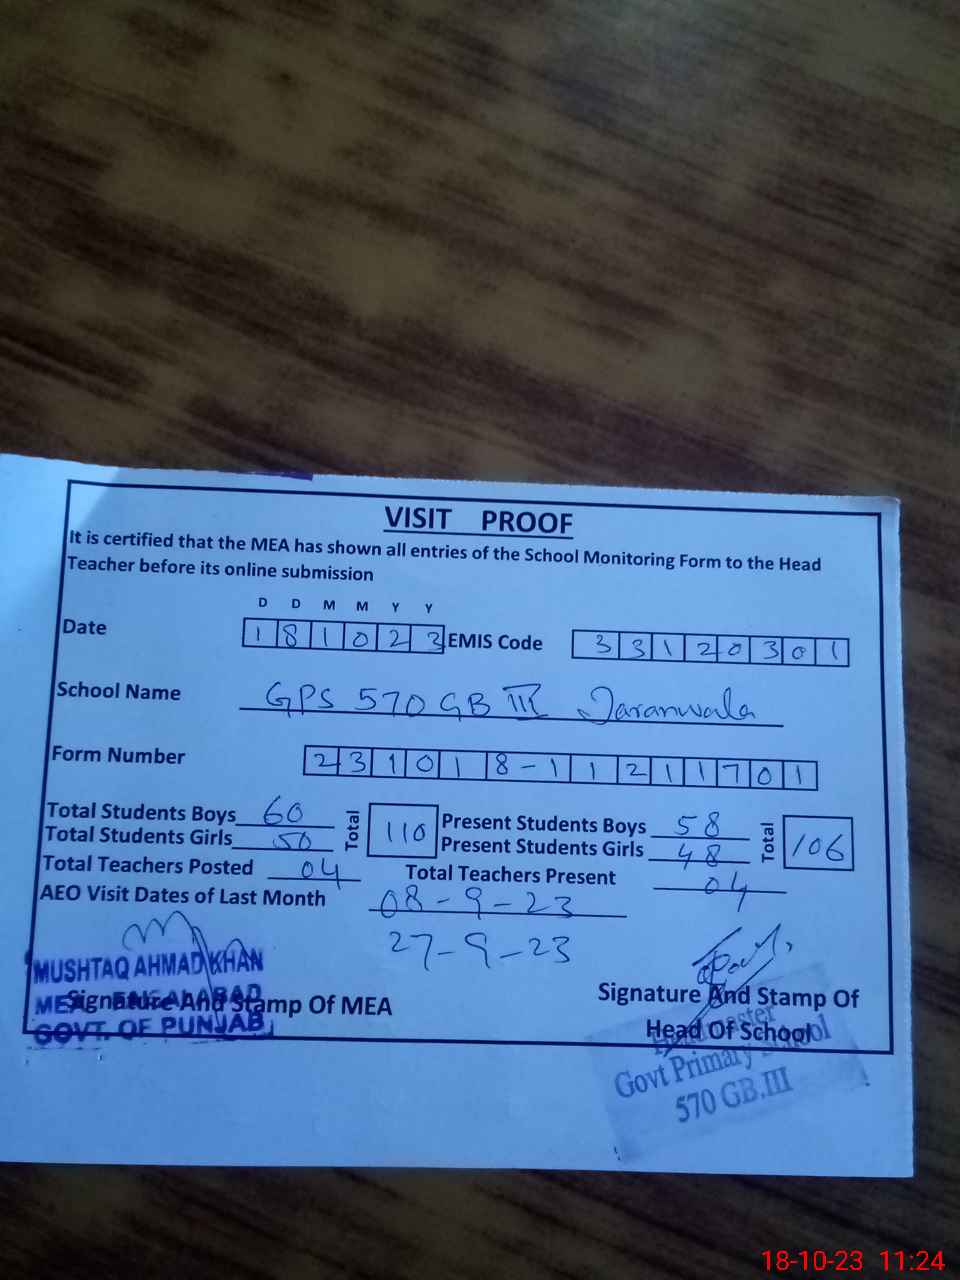 VISIT PROOF
It is certified that the MEA has shown all entries of the School Monitoring Form to the Head
Teacher before its online submission
D D M M Y Y
Date 181023 EMIS Code 33120301
School Name GPS 570 GB III Jaranwala
Form Number 231018-11211701
Total Students Boys 60 Total 110 Present Students Boys 58 Total 106
Total Students Girls 50 Present Students Girls 48
Total Teachers Posted 04 Total Teachers Present 04
AEO Visit Dates of Last Month 08-9-23
27-9-23
MUSHTAQ AHMAD KHAN
MEA FAISALABAD
GOVT. OF PUNJAB
Signature And Stamp Of MEA
Signature And Stamp Of
Head Of School
Headmaster
Govt Primary School
570 GB.III
18-10-23 11:24